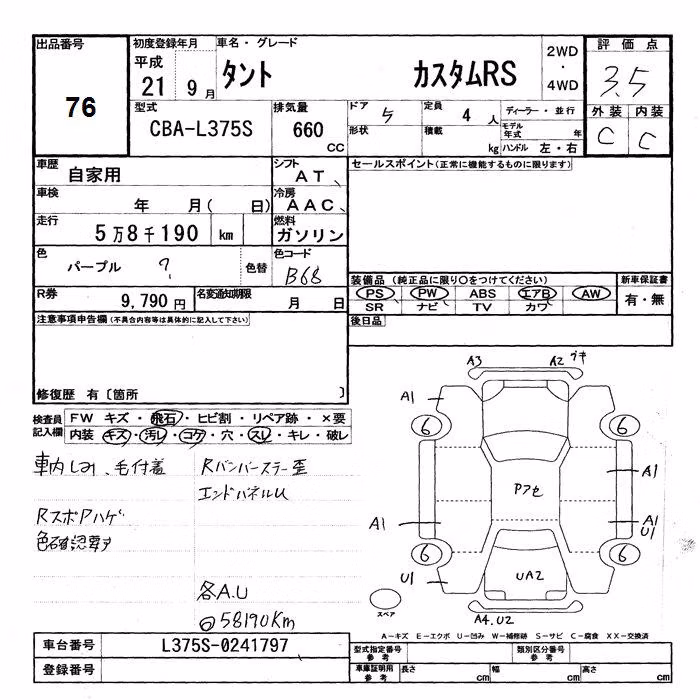 出品番号 76
初度登録年月 平成 21年 9月
車名・グレード タント カスタムRS
2WD・4WD
評価点 3.5
型式 CBA-L375S
排気量 660 CC
ドア 5
定員 4人
ディーラー・並行
形状
積載 kg
モデル年式 年
ハンドル 左・右
外装 C
内装 C
車歴 自家用
シフト AT
セールスポイント(正常に機能するものに限ります)
車検 年 月( 日)
冷房 AAC
走行 5万8千190 km
燃料 ガソリン
色 パープル ?
色替
色コード B68
装備品(純正品に限り○をつけてください)
新車保証書 有・無
R券 9,790円
名変通知期限 月 日
PS PW ABS エアB AW
SR ナビ TV カワ
注意事項申告欄(不具合内容等は具体的に記入して下さい)
後日品
修復歴 有〔箇所 〕
検査員記入欄
FW キズ・飛石・ヒビ割・リペア跡・×要
内装 キズ・汚レ・コゲ・穴・スレ・キレ・破レ
車内しみ、毛付着
RスポPハゲ
色確認要す
Rバンパーステー歪
エンドパネルU
各A.U
58190Km
A3
A2
A1
6
6
A1
Pアセ
A1
A1
U1
6
6
U1
UA2
A4.U2
スペア
A-キズ E-エクボ U-凹み W-補修跡 S-サビ C-腐食 XX-交換済
車台番号 L375S-0241797
型式指定番号 参考
類別区分番号 参考
登録番号
車庫証明用 参考
長さ cm
幅 cm
高さ cm